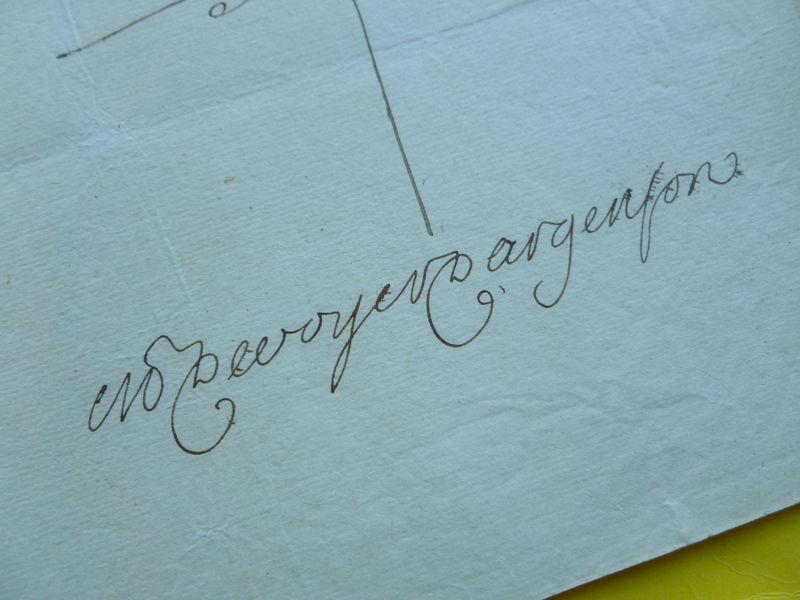 MR De voyer D argenson